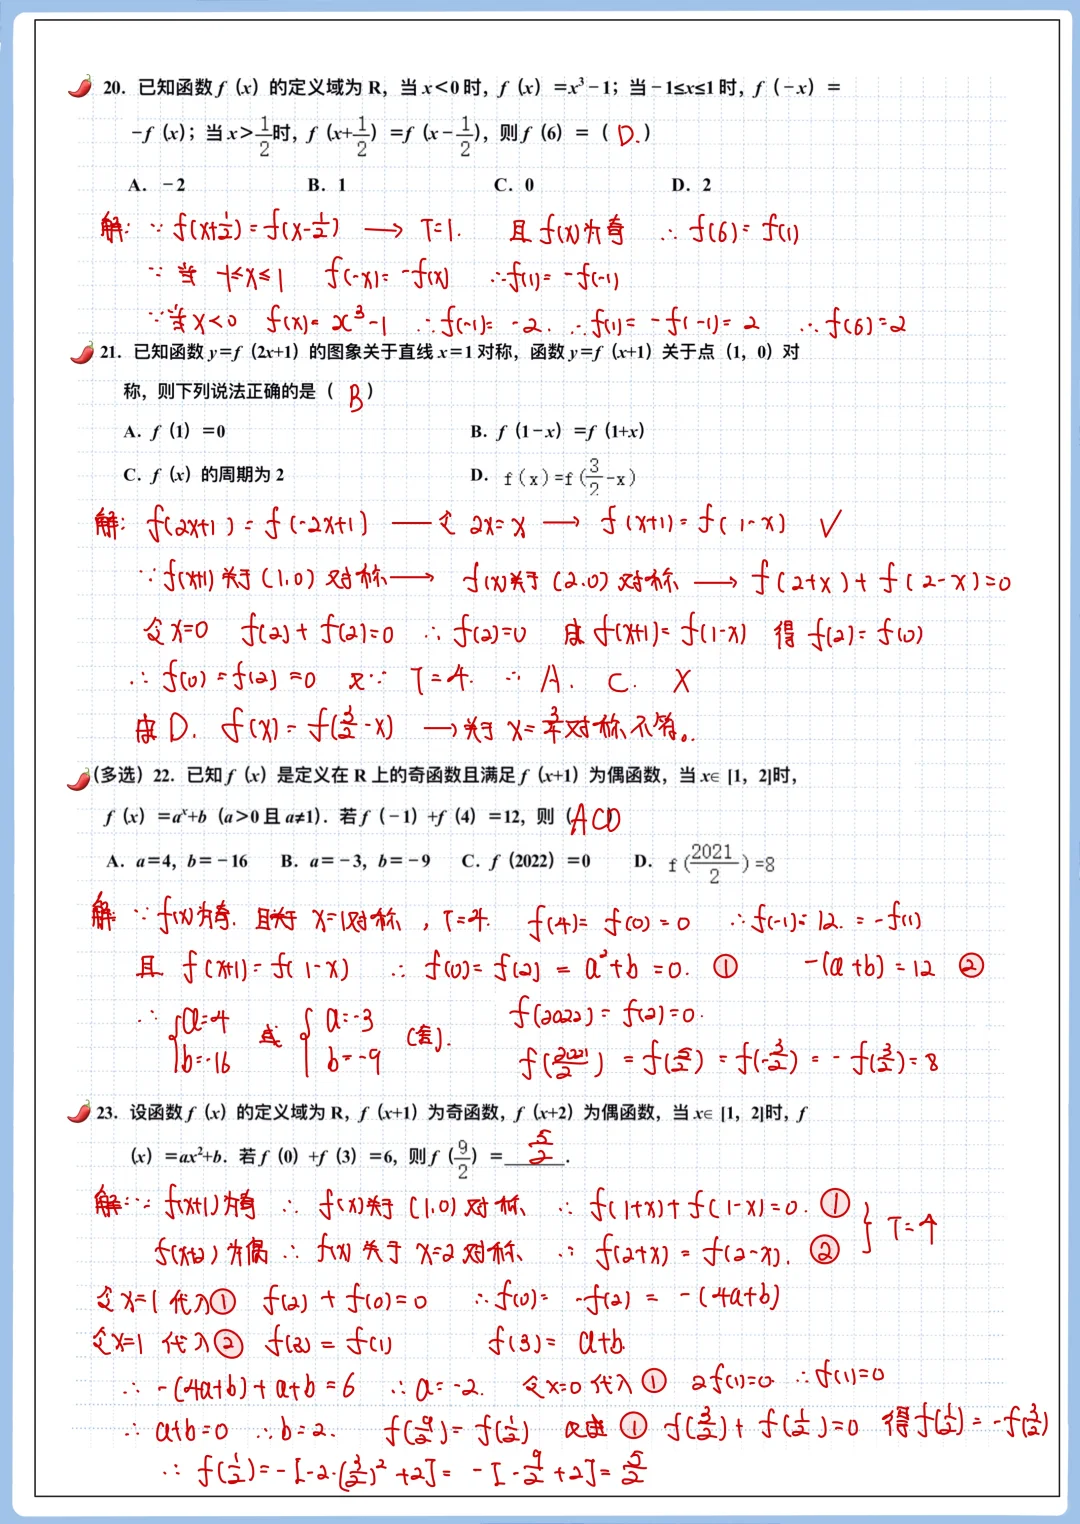 20. 已知函数 f（x）的定义域为 R，当 x＜0 时，f（x）=x³－1；当－1≤x≤1 时，f（－x）=
－f（x）；当 x＞1/2时，f（x+1/2）=f（x－1/2），则 f（6）=（ D. ）
A．－2 B．1 C．0 D．2
解: ∵ f(x+1/2)=f(x-1/2) → T=1. 且 f(x)为奇 ∴ f(6)=f(1)
∵ 当 -1≤x≤1 f(-x)=-f(x) ∴f(1)=-f(-1)
∵当x<0 f(x)=x³-1 ∴f(-1)=-2. ∴f(1)=-f(-1)=2 ∴f(6)=2
21．已知函数 y=f（2x+1）的图象关于直线 x=1 对称，函数 y=f（x+1）关于点（1，0）对
称，则下列说法正确的是（ B ）
A．f（1）=0 B．f（1－x）=f（1+x）
C．f（x）的周期为 2 D．f(x)=f(3/2-x)
解: f(2x+1)=f(-2x+1) —令 2x=x → f(x+1)=f(1-x) ✓
∵f(x+1)关于(1,0)对称→ f(x)关于(2,0)对称 → f(2+x)+f(2-x)=0
令x=0 f(2)+f(2)=0 ∴f(2)=0 由f(x+1)=f(1-x) 得 f(2)=f(0)
∴f(0)=f(2)=0 又∵ T=4. ∴ A. C. X
由D. f(x)=f(3/2-x) →关于 x=3/4对称不符.
（多选）22．已知 f（x）是定义在 R 上的奇函数且满足 f（x+1）为偶函数，当 x∈[1，2]时，
f（x）=aˣ+b（a＞0 且 a≠1）．若 f（－1）+f（4）=12，则（ACD
A．a=4，b=－16 B．a=－3，b=－9 C．f（2022）=0 D．f(2021/2)=8
解 ∵f(x)为奇. 且关于 x=1对称, T=4. f(4)=f(0)=0 ∴f(-1)=12.=-f(1)
且 f(x+1)=f(1-x) ∴ f(0)=f(2)=a²+b=0. ① -(a+b)=12 ②
∴ {a=4 b=-16 或 {a=-3 b=-9 (舍). f(2022)=f(2)=0.
f(2021/2)=f(5/2)=f(-3/2)=-f(3/2)=8
23．设函数 f（x）的定义域为 R，f（x+1）为奇函数，f（x+2）为偶函数，当 x∈[1，2]时，f
（x）=ax²+b．若 f（0）+f（3）=6，则 f（9/2）= 5/2 ．
解∵ f(x+1)为奇 ∴ f(x)关于(1,0)对称 ∴ f(1+x)+f(1-x)=0. ① } T=4
f(x+2)为偶 ∴ f(x)关于 x=2对称 ∴ f(2+x)=f(2-x). ②
令x=1代入① f(2)+f(0)=0 ∴f(0)=-f(2)=-(4a+b)
令x=1 代入② f(3)=f(1) f(3)=a+b.
∴ -(4a+b)+a+b=6 ∴a=-2. 令x=0代入① 2f(1)=0 ∴f(1)=0
∴ a+b=0 ∴b=2. f(9/2)=f(1/2) 又由① f(3/2)+f(1/2)=0 得f(1/2)=-f(3/2)
∴ f(1/2)=-[-2·(3/2)²+2]=-[-9/2+2]=5/2